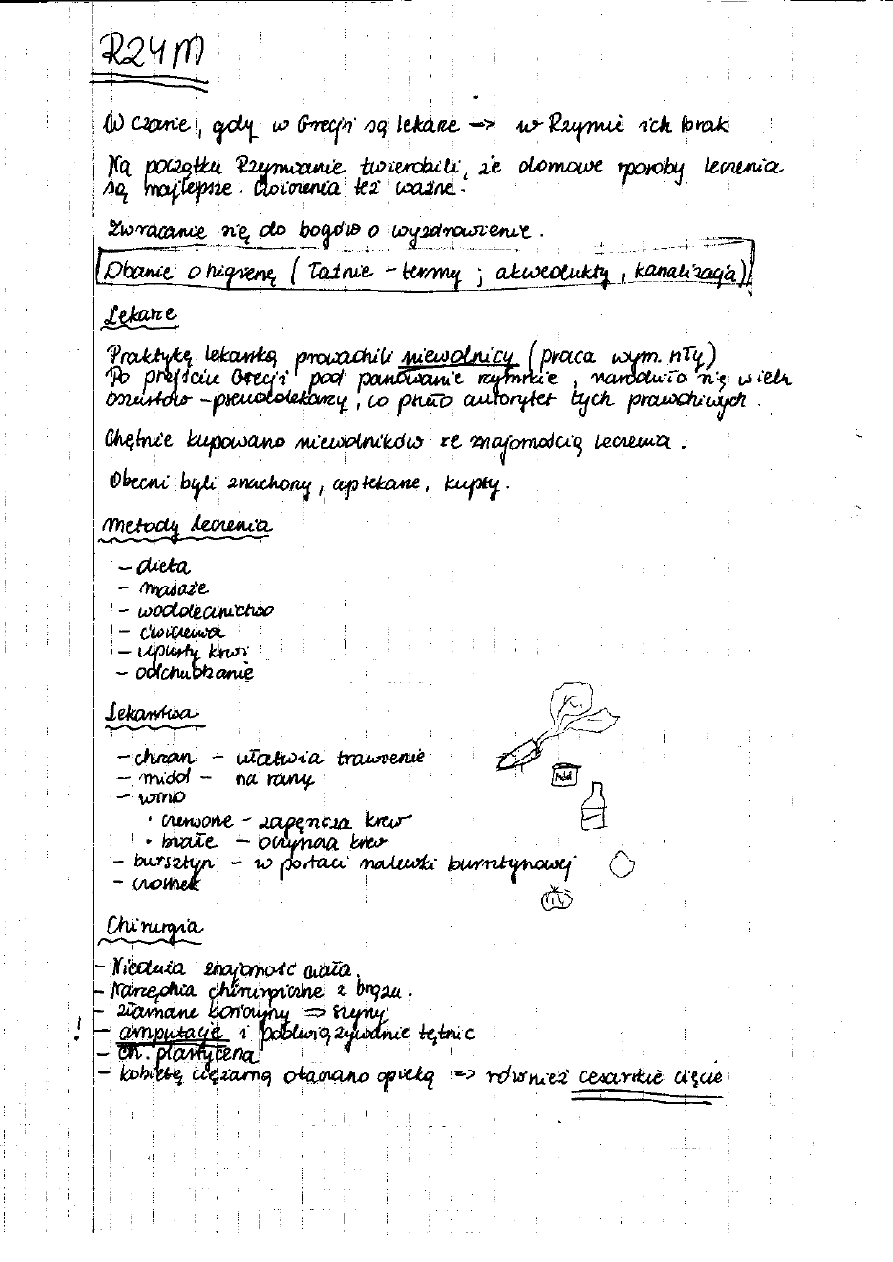 RZYM
W czasie, gdy w Grecji są lekarze → w Rzymie ich brak
Na początku Rzymianie twierdzili, że domowe sposoby leczenia
są najlepsze. Ćwiczenia też ważne.
Zwracanie się do bogów o wyzdrowienie.
Dbanie o higienę (łaźnie - termy ; akwedukty, kanalizacja)
Lekarze
Praktykę lekarską prowadzili niewolnicy (praca wym. siły)
Po przejściu Grecji pod panowanie rzymskie, narodziło się wielu
oszustów - pseudolekarzy, co psuło autorytet tych prawdziwych.
Chętnie kupowano niewolników ze znajomością leczenia.
Obecni byli znachorzy, aptekarze, kupcy.
Metody leczenia
- dieta
- masaże
- wodolecznictwo
- ćwiczenia
- upusty krwi
- odchudzanie
Lekarstwa
- chrzan - ułatwia trawienie
- miód - na rany
- wino
• czerwone - zagęszcza krew
• białe - oczyszcza krew
- bursztyn - w postaci nalewki bursztynowej
- czosnek
Miód
Chirurgia
- Nieduża znajomość ciała.
- Narzędzia chirurgiczne z brązu.
- złamane kończyny ⇒ szyny
! - amputacje i podwiązywanie tętnic
- ch. plastyczna
- kobietę ciężarną otaczano opieką ⇒ również cesarskie cięcie